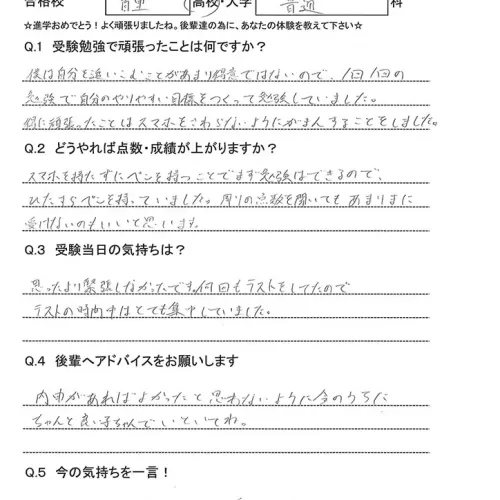 合格校 高校・大学 普通 科
☆進学おめでとう!よく頑張りましたね。後輩達の為に、あなたの体験を教えて下さい☆
Q.1 受験勉強で頑張ったことは何ですか?
僕は自分を追いこむことがあまり得意ではないので、1回1回の
勉強で自分のやりやすい目標をつくって勉強していました。
特に頑張ったことはスマホをさわらないようにがまんすることをしました。
Q.2 どうやれば点数・成績が上がりますか?
スマホを持たずにペンを持つことでまず勉強はできるので、
ひたすらペンを持っていました。周りの点数を聞いてもあまりまに
受けないのもいいと思います。
Q.3 受験当日の気持ちは?
思ったより緊張しなかったです。何回もテストをしてたので
テストの時間中はとても集中していました。
Q.4 後輩へアドバイスをお願いします
内申があればよかったと思わないように今のうちに
ちゃんと良い子ちゃんでいといてね。
Q.5 今の気持ちを一言!